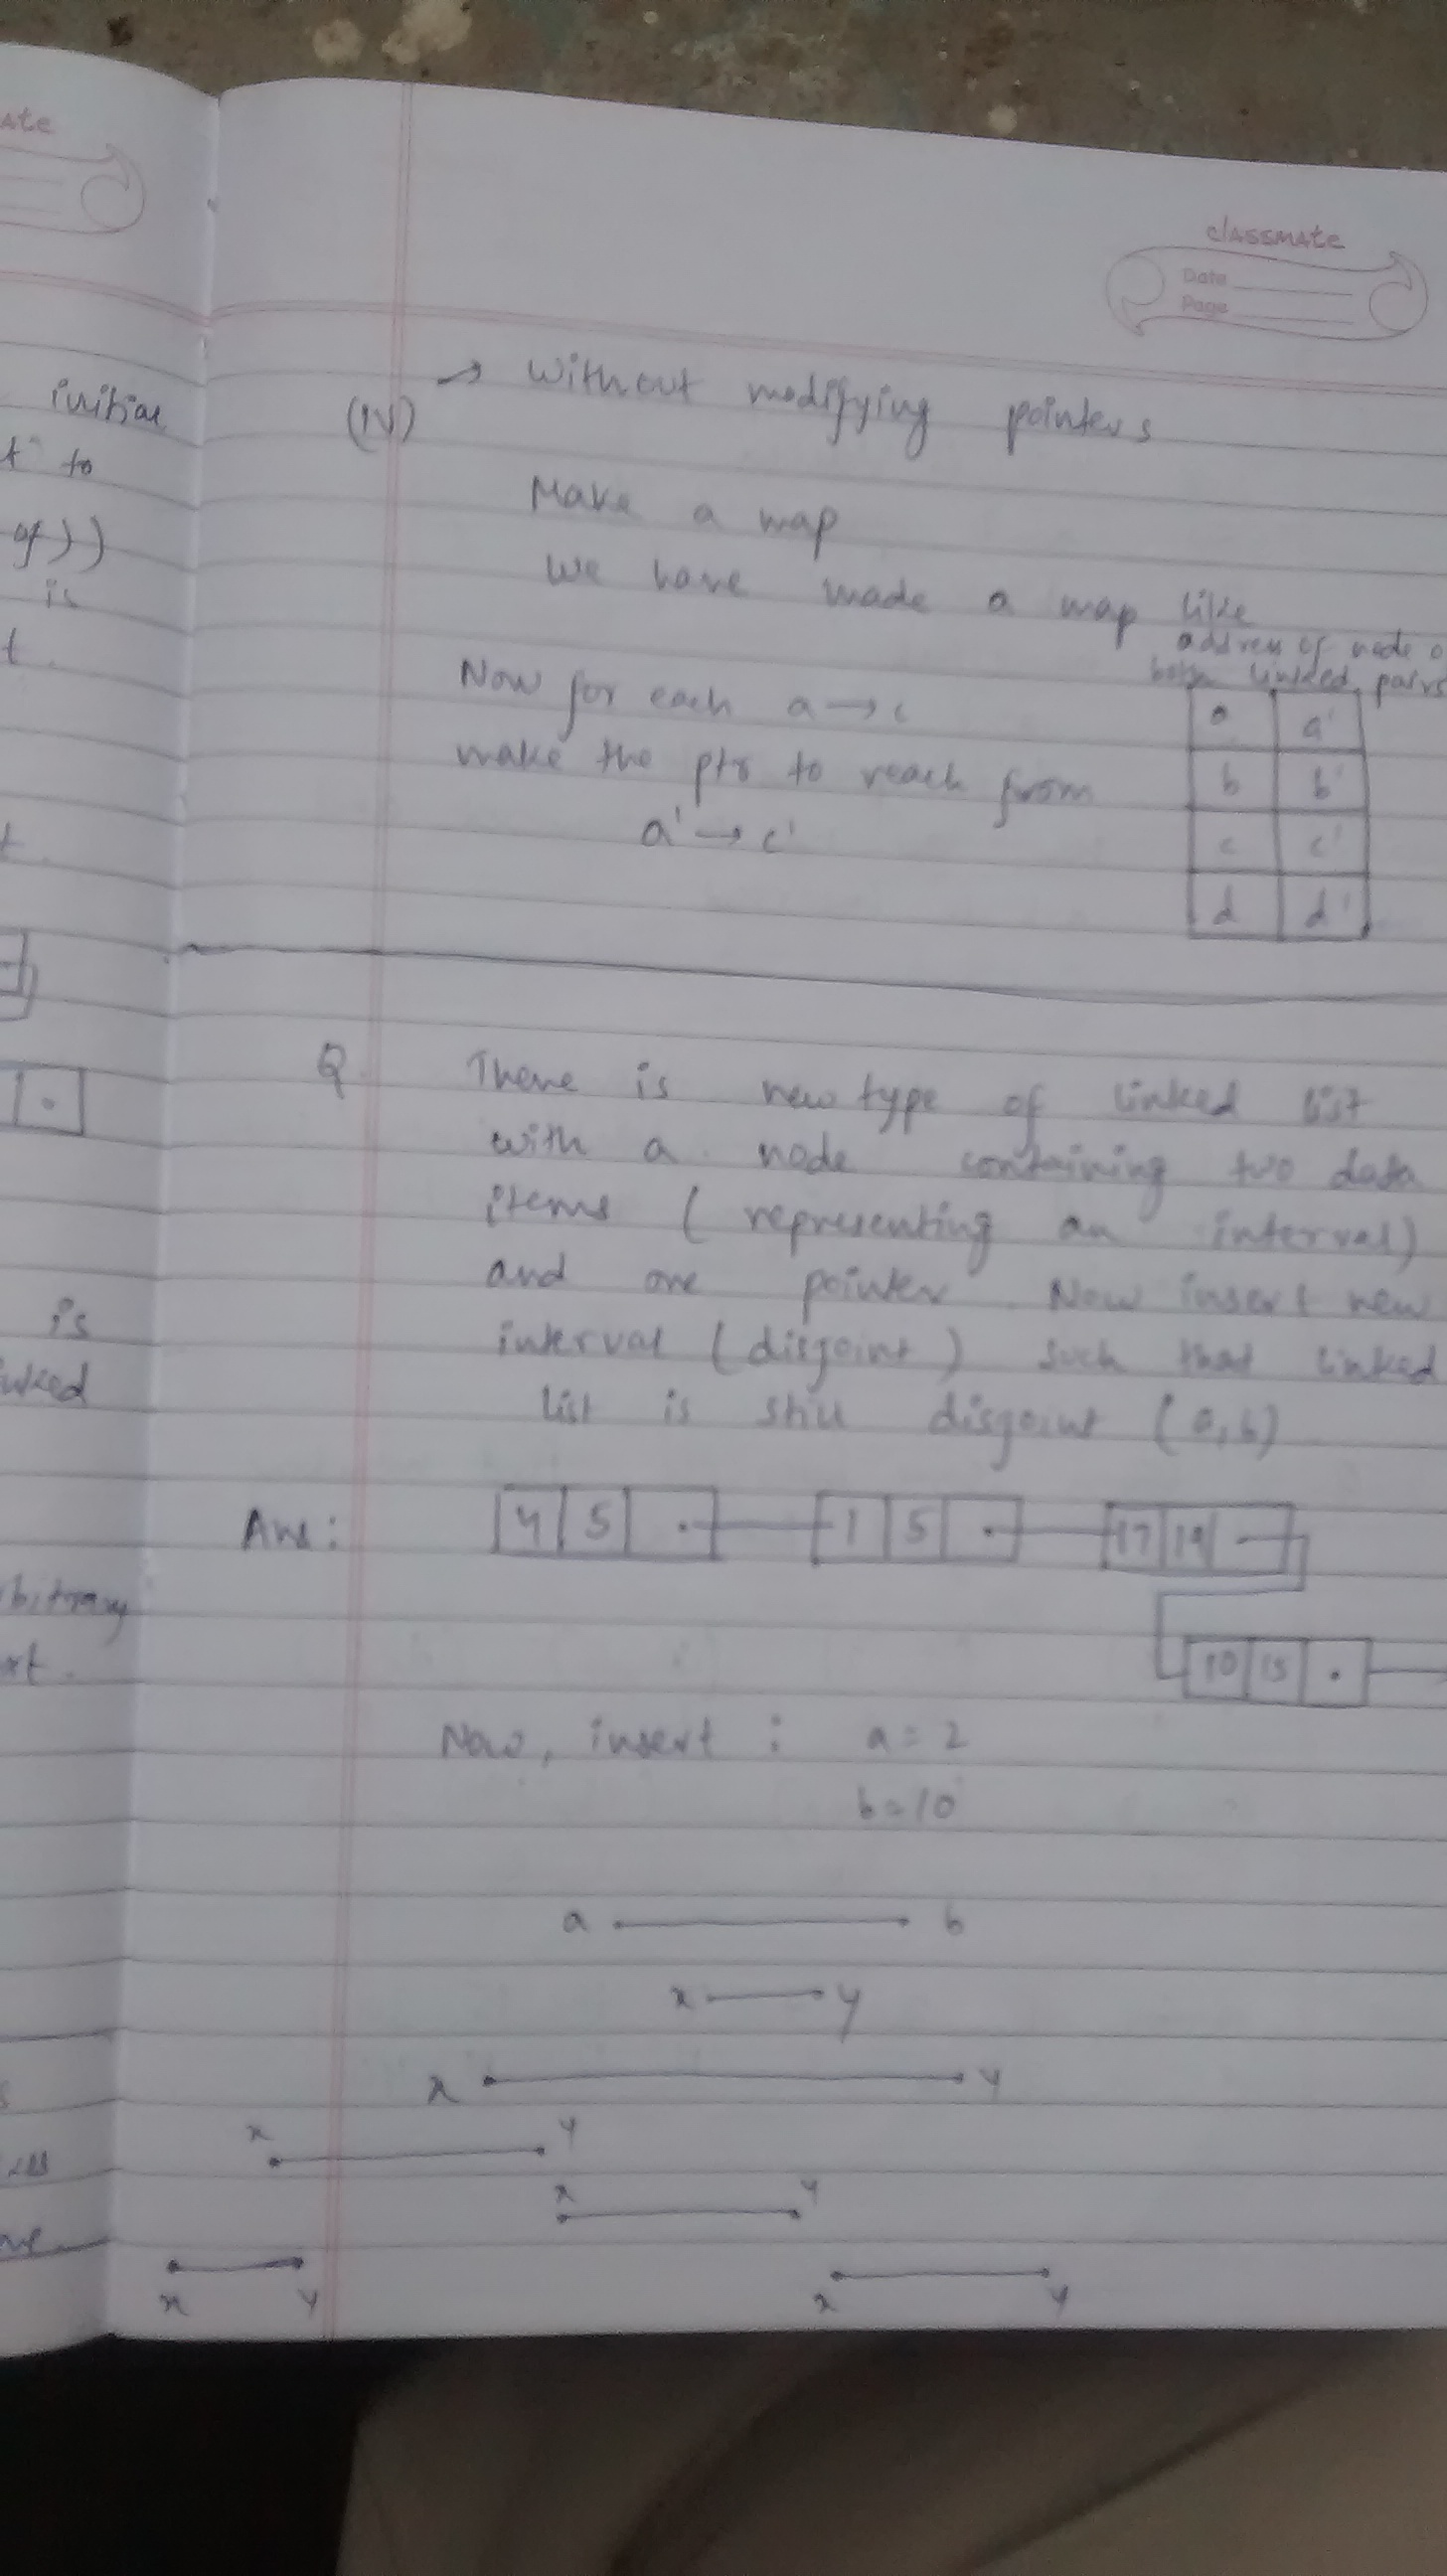 ate
initial
t to
of))
is
t.
t.
is
rbitrary
classmate
Date
Page
(IV) → without modifying pointers
Make a map
We have made a map like
address of node o
linked pairs
Now for each a → c
make the ptr to reach from
a' → c'
a a'
b b'
c c'
d d'
Q. There is new type of linked list
with a node containing two data
items ( representing an interval)
and one pointer. Now insert new
interval (disjoint) such that linked
list is still disjoint (a, b)
Ans: 4 5 1 5 17 19
10 15
Now, insert : a = 2
b = 10
a b
x y
x y
x y
x y
x y x y